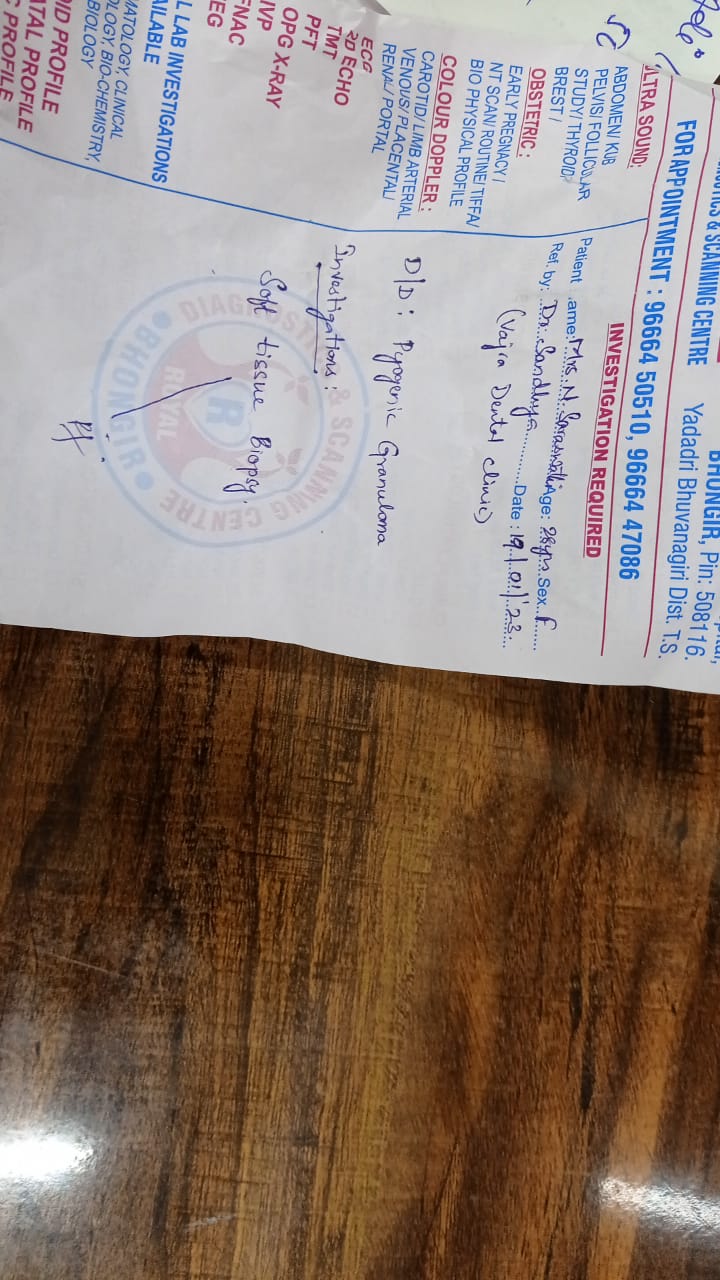 & SCANNING CENTRE
BHONGIR, Pin: 508116.
Yadadri Bhuvanagiri Dist. T.S.
FOR APPOINTMENT : 96664 50510, 96664 47086
INVESTIGATION REQUIRED
Patient ame: Mrs. N. Saraswathi Age: 28yrs Sex F
Ref. by: Dr. Sandhya Date : 19/01/'23
(Vajra Dental clinic)
D/D : Pyogenic Granuloma
Investigations :
Soft tissue Biopsy.
LTRA SOUND:
ABDOMEN/ KUB
PELVIS/ FOLLICULAR
STUDY/ THYROID/
BREST /
OBSTETRIC :
EARLY PREGNACY /
NT SCAN/ ROUTINE/ TIFFA/
BIO PHYSICAL PROFILE
COLOUR DOPPLER :
CAROTID/ LIMB ARTERIAL
VENOUS/ PLACENTAL/
RENAL/ PORTAL
ECG
2D ECHO
TMT
PFT
OPG X-RAY
IVP
FNAC
EEG
L LAB INVESTIGATIONS
AILABLE
MATOLOGY, CLINICAL
OLOGY, BIO-CHEMISTRY,
BIOLOGY
ID PROFILE
ATAL PROFILE
C PROFILE
DIAGNOSTIC & SCANNING CENTRE
BHONGIR
R
ROYAL